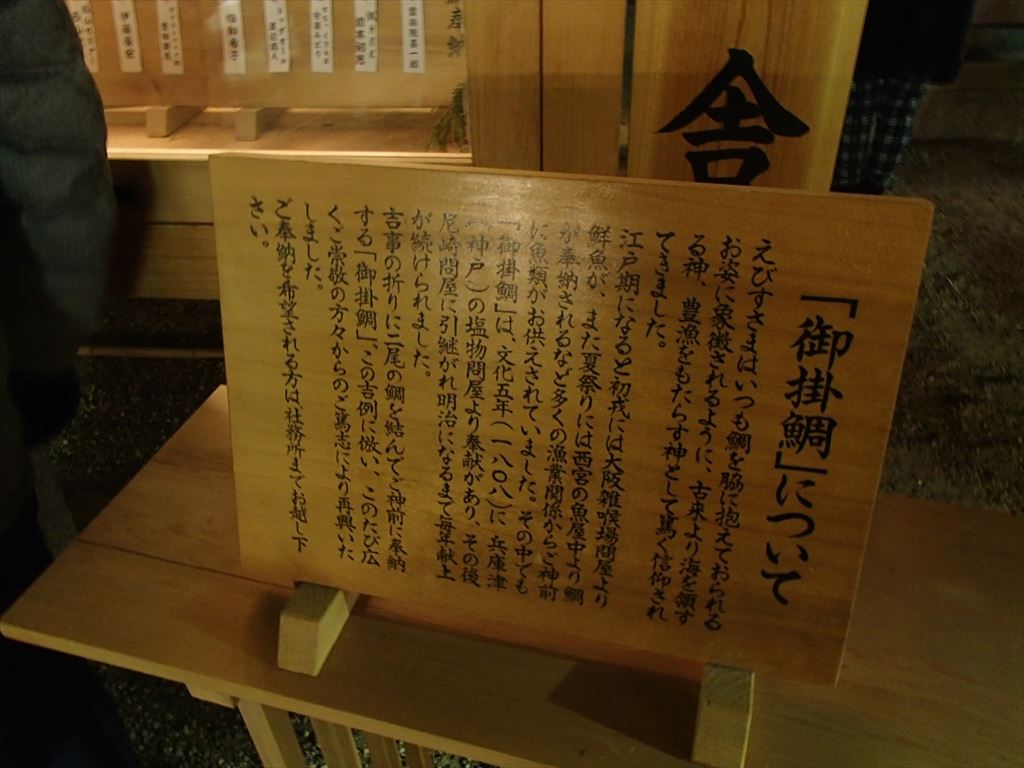 「御掛鯛」について
えびすさまはいつも鯛を脇に抱えておられる
お姿に象徴されるように、古来より海を領す
る神、豊漁をもたらす神として篤く信仰され
てきました。
江戸期になると初戎には大阪雑喉場問屋より
鮮魚が、また夏祭りには西宮の魚屋中より鯛
が奉納されるなど多くの漁業関係からご神前
に魚類がお供えされていました。その中でも
「御掛鯛」は、文化五年(一八〇八)に、兵庫津
(神戸)の塩物問屋より奉献があり、その後
尼崎問屋に引継がれ明治になるまで毎年献上
が続けられました。
吉事の折りに二尾の鯛を結んでご神前に奉納
する「御掛鯛」、この吉例に倣い、このたび広
くご崇敬の方々からのご篤志により再興いた
しました。
ご奉納を希望される方は社務所までお越し下
さい。
舎